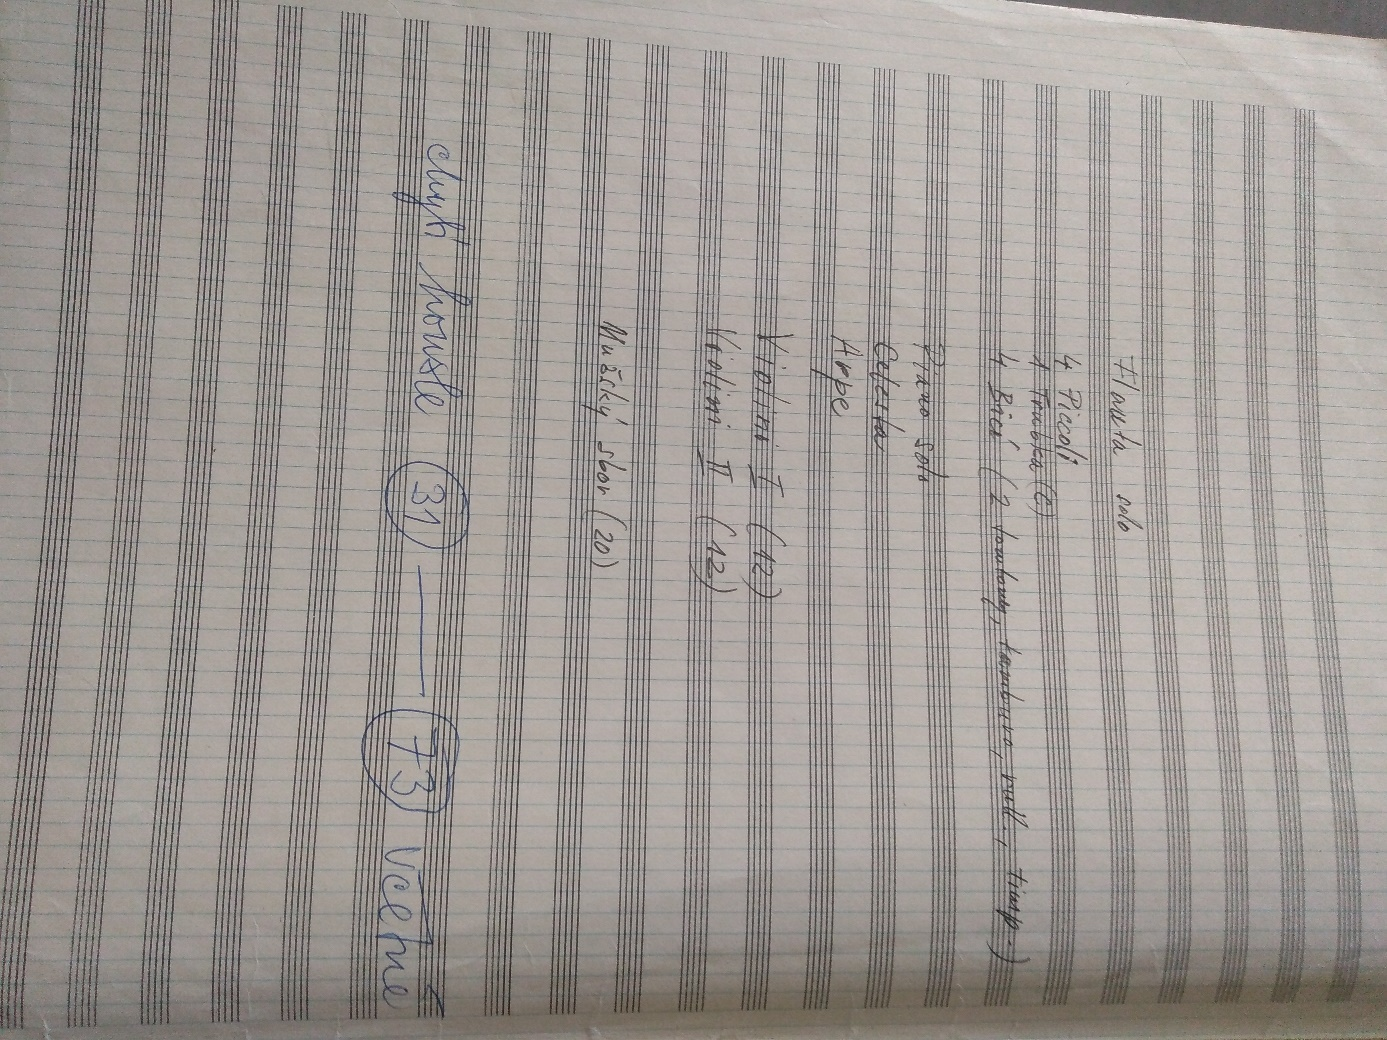 Flauta solo
4 Piccoli
1 Trubka (C)
4 Bicí (2 tomtomy, tamburo, rull., timp.)
Piano solo
Celesta
Arpe
Violini I (12)
Violini II (12)
Mužský sbor (20)
chybí housle 31 — 73 včetně